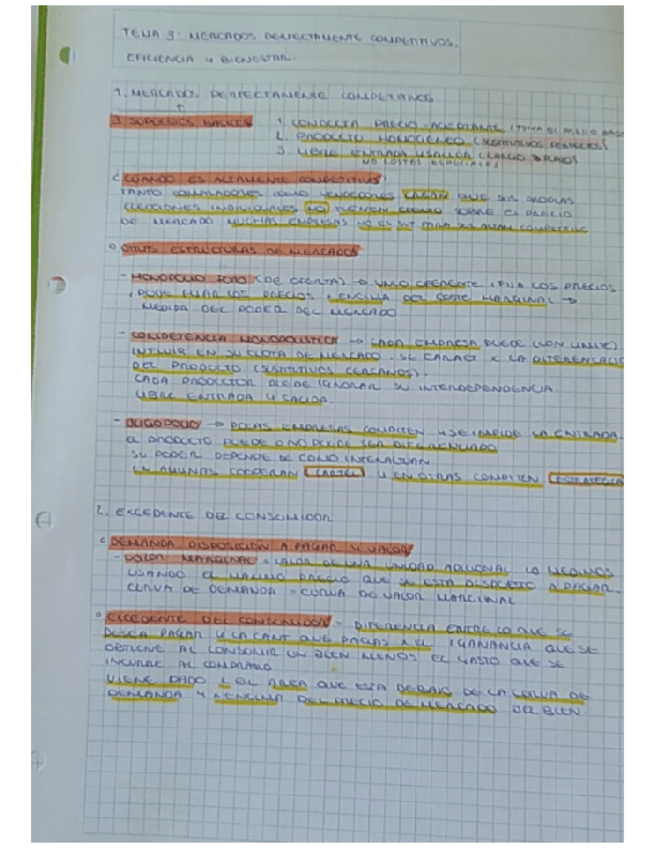 TEMA 3: MERCADOS PERFECTAMENTE COMPETITIVOS,
EFICIENCIA Y BIENESTAR.
1. MERCADOS PERFECTAMENTE COMPETITIVOS
3 SUPUESTOS BÁSICOS 1. CONDUCTA PRECIO-ACEPTANTE
2. PRODUCTO HOMOGENEO (SUSTITUTIVOS PERFECTOS)
3. LIBRE ENTRADA Y SALIDA
NO COSTES ESPECIALES
CUANDO ES ALTAMENTE COMPETITIVO:
TANTO COMPRADORES COMO VENDEDORES CREAN QUE SUS PROPIAS
DECISIONES INDIVIDUALES NO TIENEN EFECTO SOBRE EL PRECIO
DE MERCADO MUCHAS EMPRESAS NO ES SUF PARA SER ALTAM COMPETITIVO
OTRAS ESTRUCTURAS DE MERCADOS
- MONOPOLIO PURO (DE OFERTA) → UNICO OFERENTE, FIJA LOS PRECIOS
, PUEDE FIJAR LOS PRECIOS, ENCIMA DEL COSTE MARGINAL →
MEDIDA DEL PODER DEL MERCADO
- COMPETENCIA MONOPOLISTICA → CADA EMPRESA PUEDE (CON LIMITE)
INFLUIR EN SU CUOTA DE MERCADO. SE CARACT X LA DIFERENCIACIO
DEL PRODUCTO (SUSTITUTIVOS CERCANOS).
CADA PRODUCTOR PUEDE IGNORAR SU INTERDEPENDENCIA
LIBRE ENTRADA Y SALIDA.
- OLIGOPOLIO → POCAS EMPRESAS COMPITEN Y SE IMPIDE LA ENTRADA.
EL PRODUCTO PUEDE O NO PUEDE SER DIFERENCIADO
SU PODER DEPENDE DE COMO INTERACTUAN
EN ALGUNAS COOPERAN (CARTEL) Y EN OTRAS COMPITEN (ESTRATEGICA
2. EXCEDENTE DEL CONSUMIDOR
DEMANDA, DISPOSICIÓN A PAGAR Y VALOR
- VALOR MARGINAL = VALOR DE UNA UNIDAD ADICIONAL LO MEDIMOS
USANDO EL MAXIMO PRECIO QUE SE ESTA DISPUESTO A PAGAR.
CURVA DE DEMANDA = CURVA DE VALOR MARGINAL
EXCEDENTE DEL CONSUMIDOR = DIFERENCIA ENTRE LO QUE SE
DESEA PAGAR Y LA CANT QUE PAGAS X EL (GANANCIA QUE SE
OBTIENE AL CONSUMIR UN BIEN MENOS EL GASTO QUE SE
INCURRE AL COMPRARLO
VIENE DADO X EL AREA QUE ESTA DEBAJO DE LA CURVA DE
DEMANDA Y X ENCIMA DEL PRECIO DE MERCADO DEL BIEN